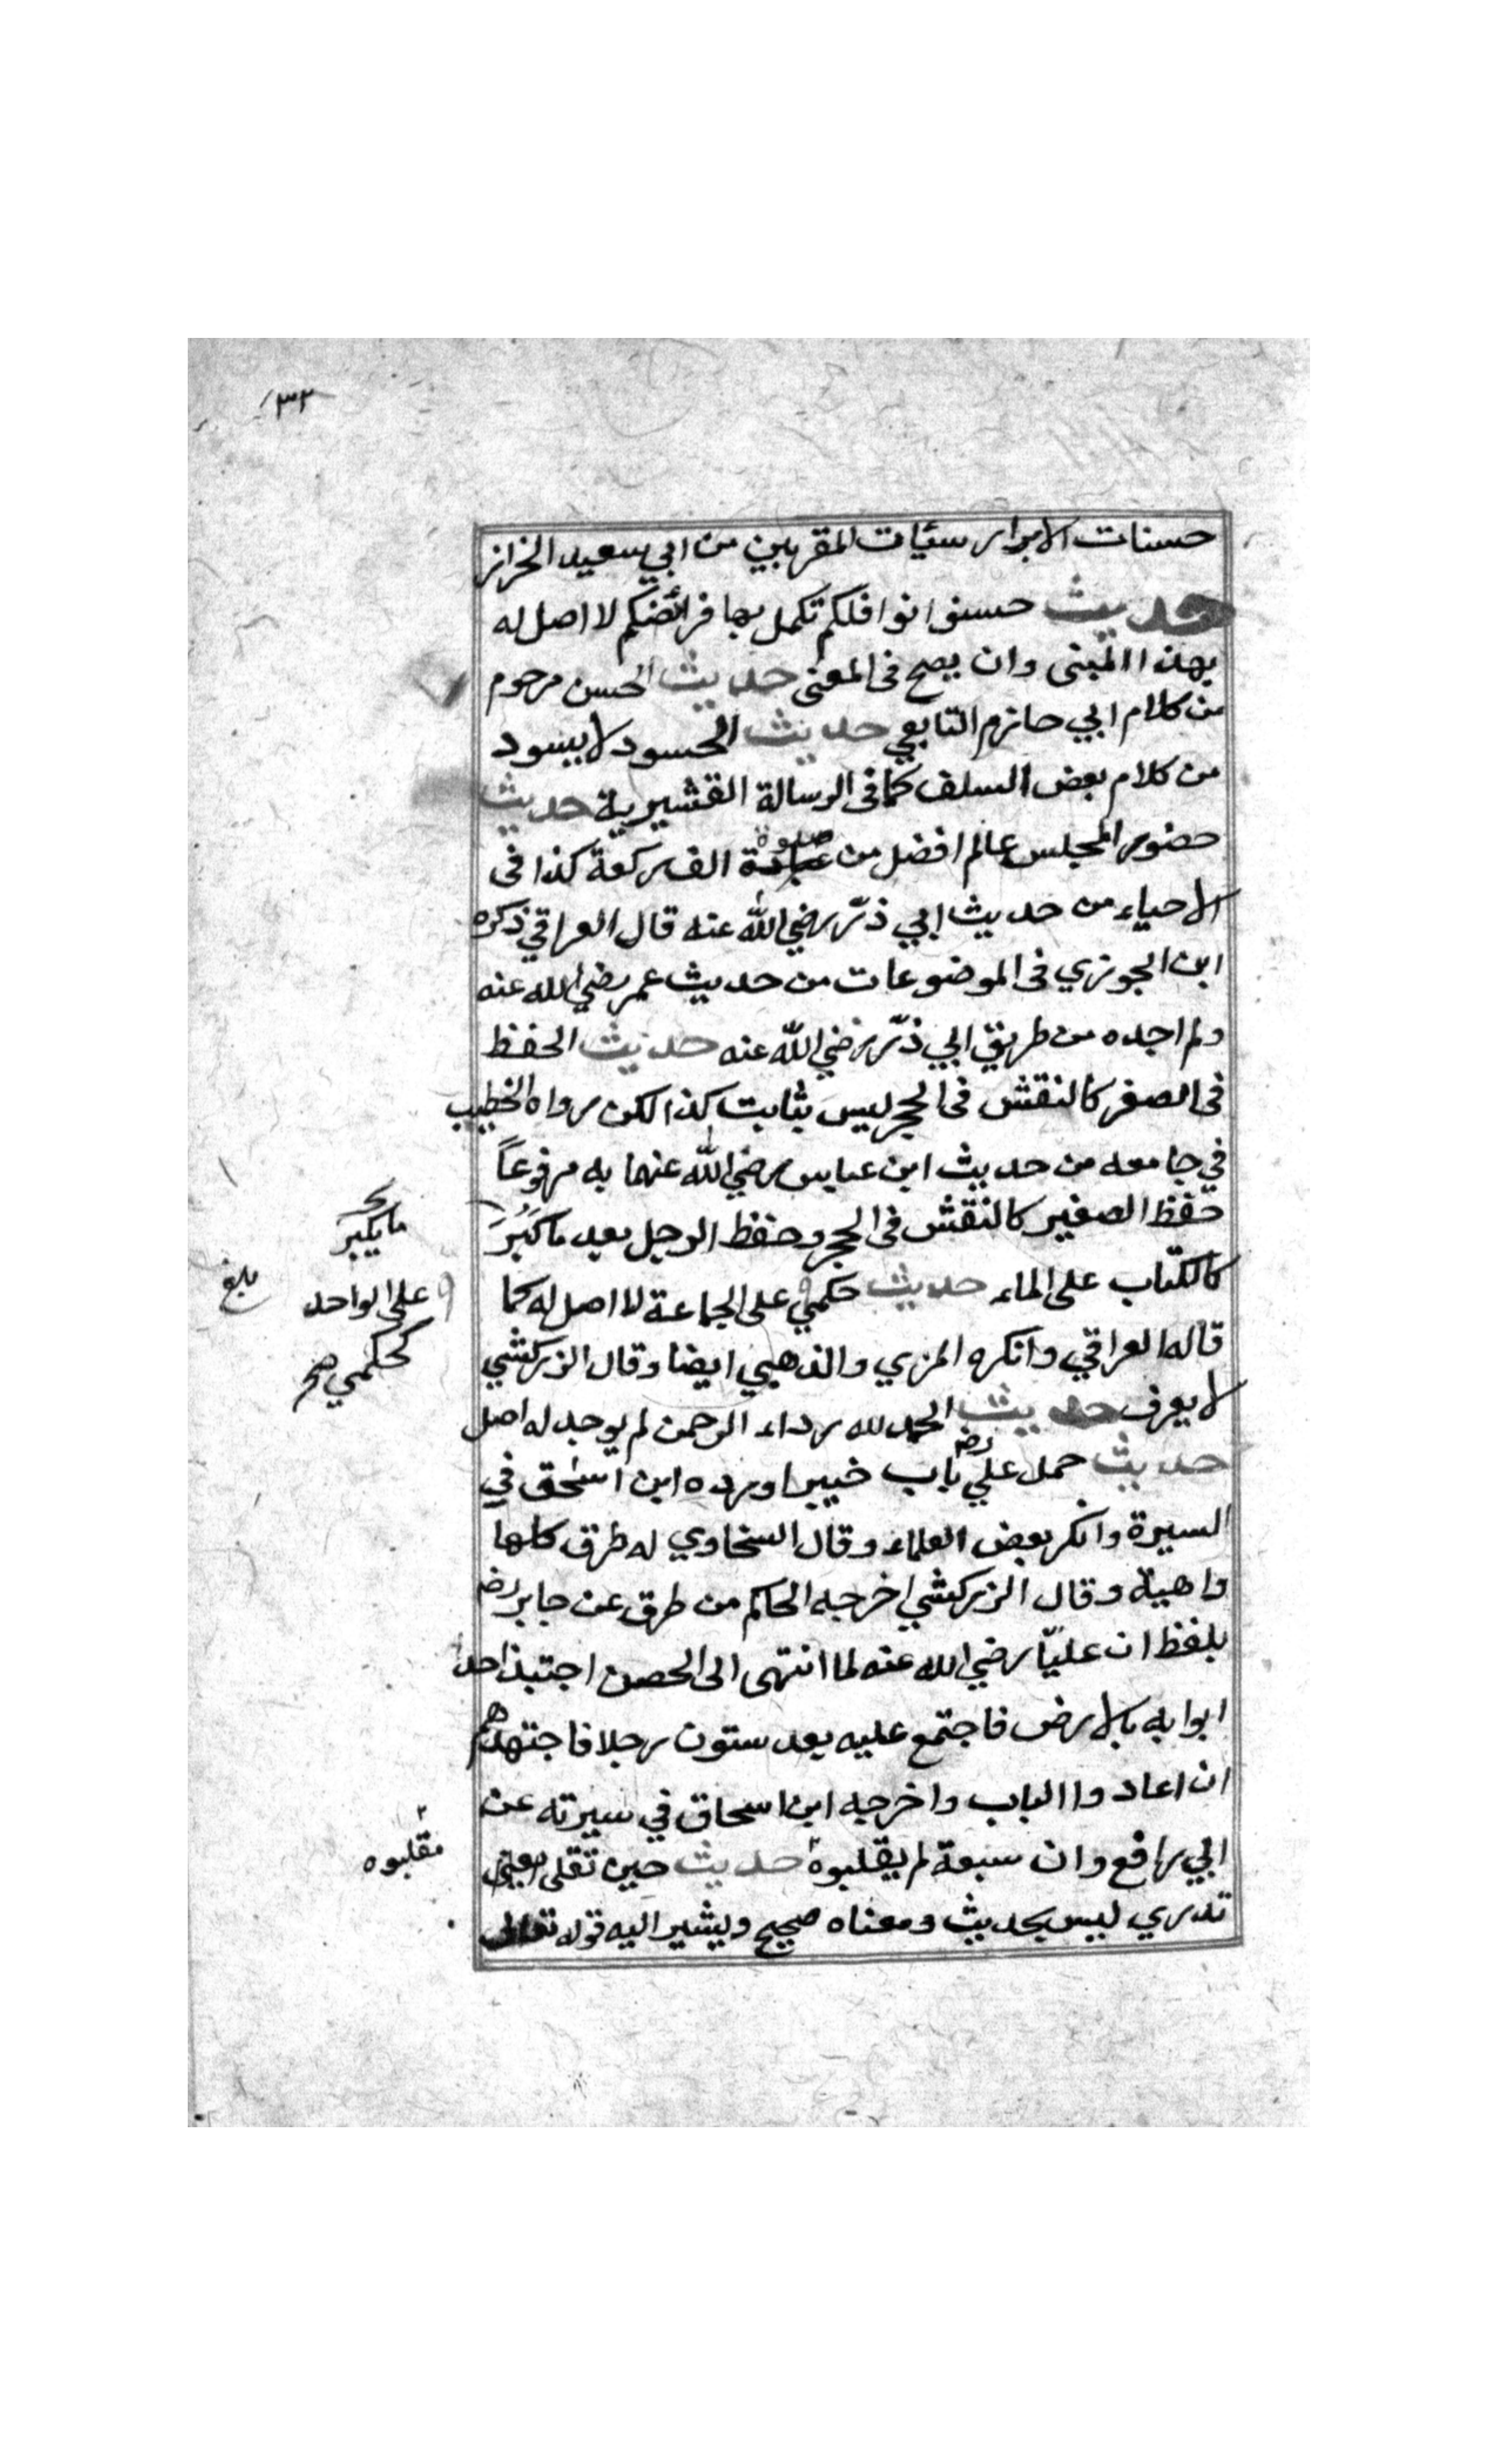 ٣٢
حسنات الابرار سيئات المقربين من ابي سعيد الخراز
حديث حسنوا نوافلكم تكمل بها فرائضكم لا اصل له
بهذا المبنى وان يصح فى المعنى حديث الحسن مرحوم
من كلام ابي حازم التابعي حديث الحسود لا يسود
من كلام بعض السلف كما فى الرسالة القشيرية حديث
حضور المجلس عالم افضل من صلوة الف ركعة كذا فى
الاحياء من حديث ابي ذرّ رضي الله عنه قال العراقي ذكره
ابن الجوزي فى الموضوعات من حديث عمر رضي الله عنه
ولم اجده من طريق ابي ذرّ رضي الله عنه حديث الحفظ
فى الصغر كالنقش فى الحجر ليس بثابت كذا لكن رواه الخطيب
في جامعه من حديث ابن عباس رضي الله عنهما به مرفوعاً
حفظ الصغير كالنقش فى الحجر وحفظ الرجل بعد ما كَبُرَ
ما يكبر
كالكتاب على الماء حديث حكمي على الجماعة لا اصل له كما
على الواحد
كحكمي
بلغ
قاله العراقي وانكره المزي والذهبي ايضا وقال الزركشي
لا يعرف حديث الحمد لله رداء الرحمن لم يوجد له اصل
حديث حمل عليّ رضه باب خيبر اورده ابن اسحق في
السيرة وانكر بعض العلماء وقال السخاوي له طرق كلها
واهية وقال الزركشي اخرجه الحاكم من طرق عن جابر رضه
بلفظ ان عليّا رضي الله عنه لما انتهى الى الحصن اجتبذ احد
ابوابه بالارض فاجتمع عليه بعد ستون رجلا فاجتهدهم
ان اعادوا الباب واخرجه ابن اسحاق في سيرته عن
ابي رافع وان سبعة لم يقلبوه حديث حين تقلى
مقلبوه
تدري ليس بحديث ومعناه صحيح ويشير اليه قوله تعالى